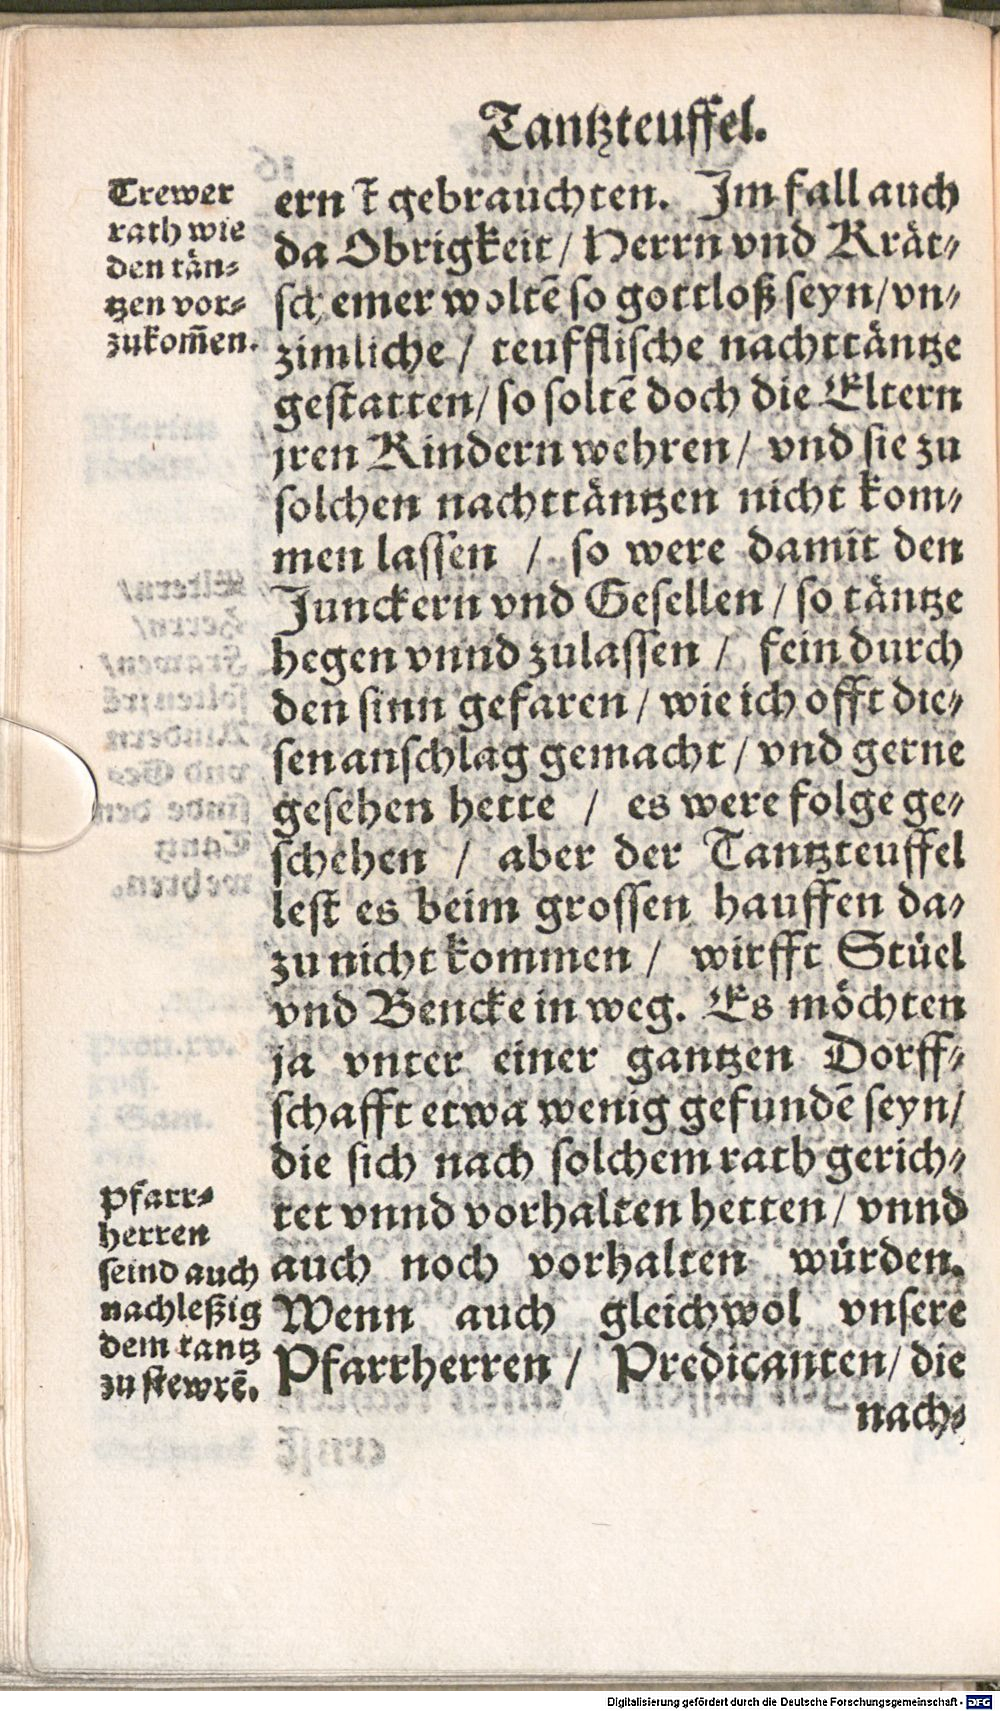 Tantzteuffel.
Trewer
rath wie
den tän-
tzen vor-
zukom̃en.
ern gebrauchten. Im fall auch
da Obrigkeit / Herrn vnd Krät-
sch emer woltē so gottloß seyn / vn-
zimliche / teufflische nachttäntze
gestatten / so soltē doch die Eltern
jren Kindern wehren / vnd sie zu
solchen nachttäntzen nicht kom-
men lassen / so were damit den
Junckern vnd Gesellen / so täntze
hegen vnnd zulassen / fein durch
den sinn gefaren / wie ich offt die-
sen anschlag gemacht / vnd gerne
gesehen hette / es were folge ge-
schehen / aber der Tantzteuffel
lest es beim grossen hauffen da-
zu nicht kommen / wirfft Stüel
vnd Bencke in weg. Es möchten
ja vnter einer gantzen Dorff-
schafft etwa wenig gefundē seyn /
die sich nach solchem rath gerich-
tet vnnd vorhalten hetten / vnnd
auch noch vorhalten würden.
Wenn auch gleichwol vnsere
Pfarrherren / Predicanten / die
nach-
Pfarr-
herren
seind auch
nachleßig
dem tantz
zu stewrē.
Digitalisierung gefördert durch die Deutsche Forschungsgemeinschaft - DFG